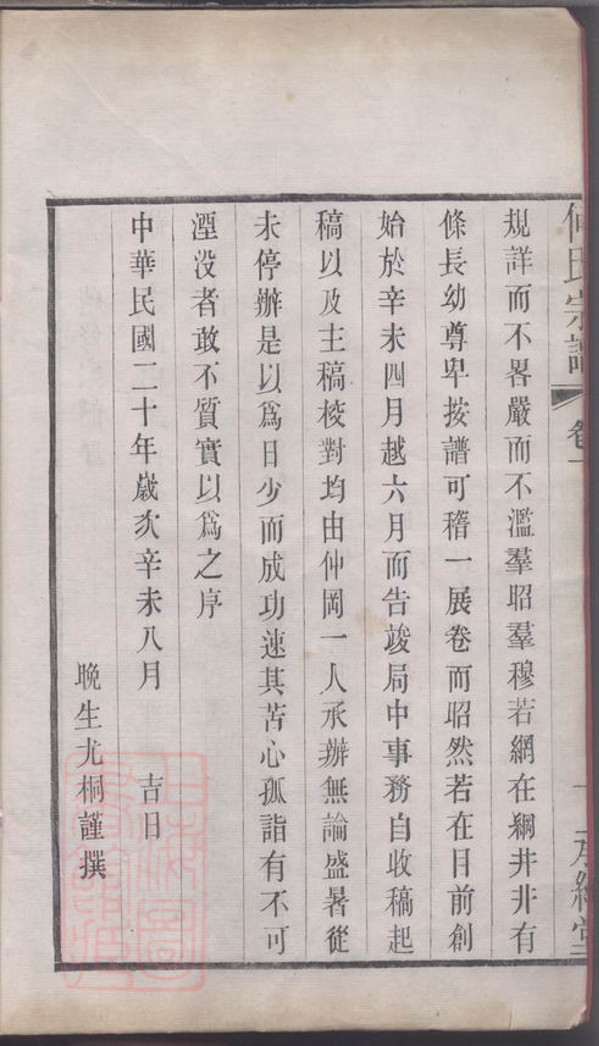 何氏宗譜 卷一
規詳而不畧嚴而不濫羣昭羣穆若網在綱井井有
條長幼尊卑按譜可稽一展卷而昭然若在目前創
始於辛未四月越六月而告竣局中事務自收稿起
稿以及主稿校對均由仲岡一人承辦無論盛暑從
未停辦是以爲日少而成功速其苦心孤詣有不可
湮没者敢不質實以爲之序
中華民國二十年歲次辛未八月 吉日
晚生尤桐謹撰